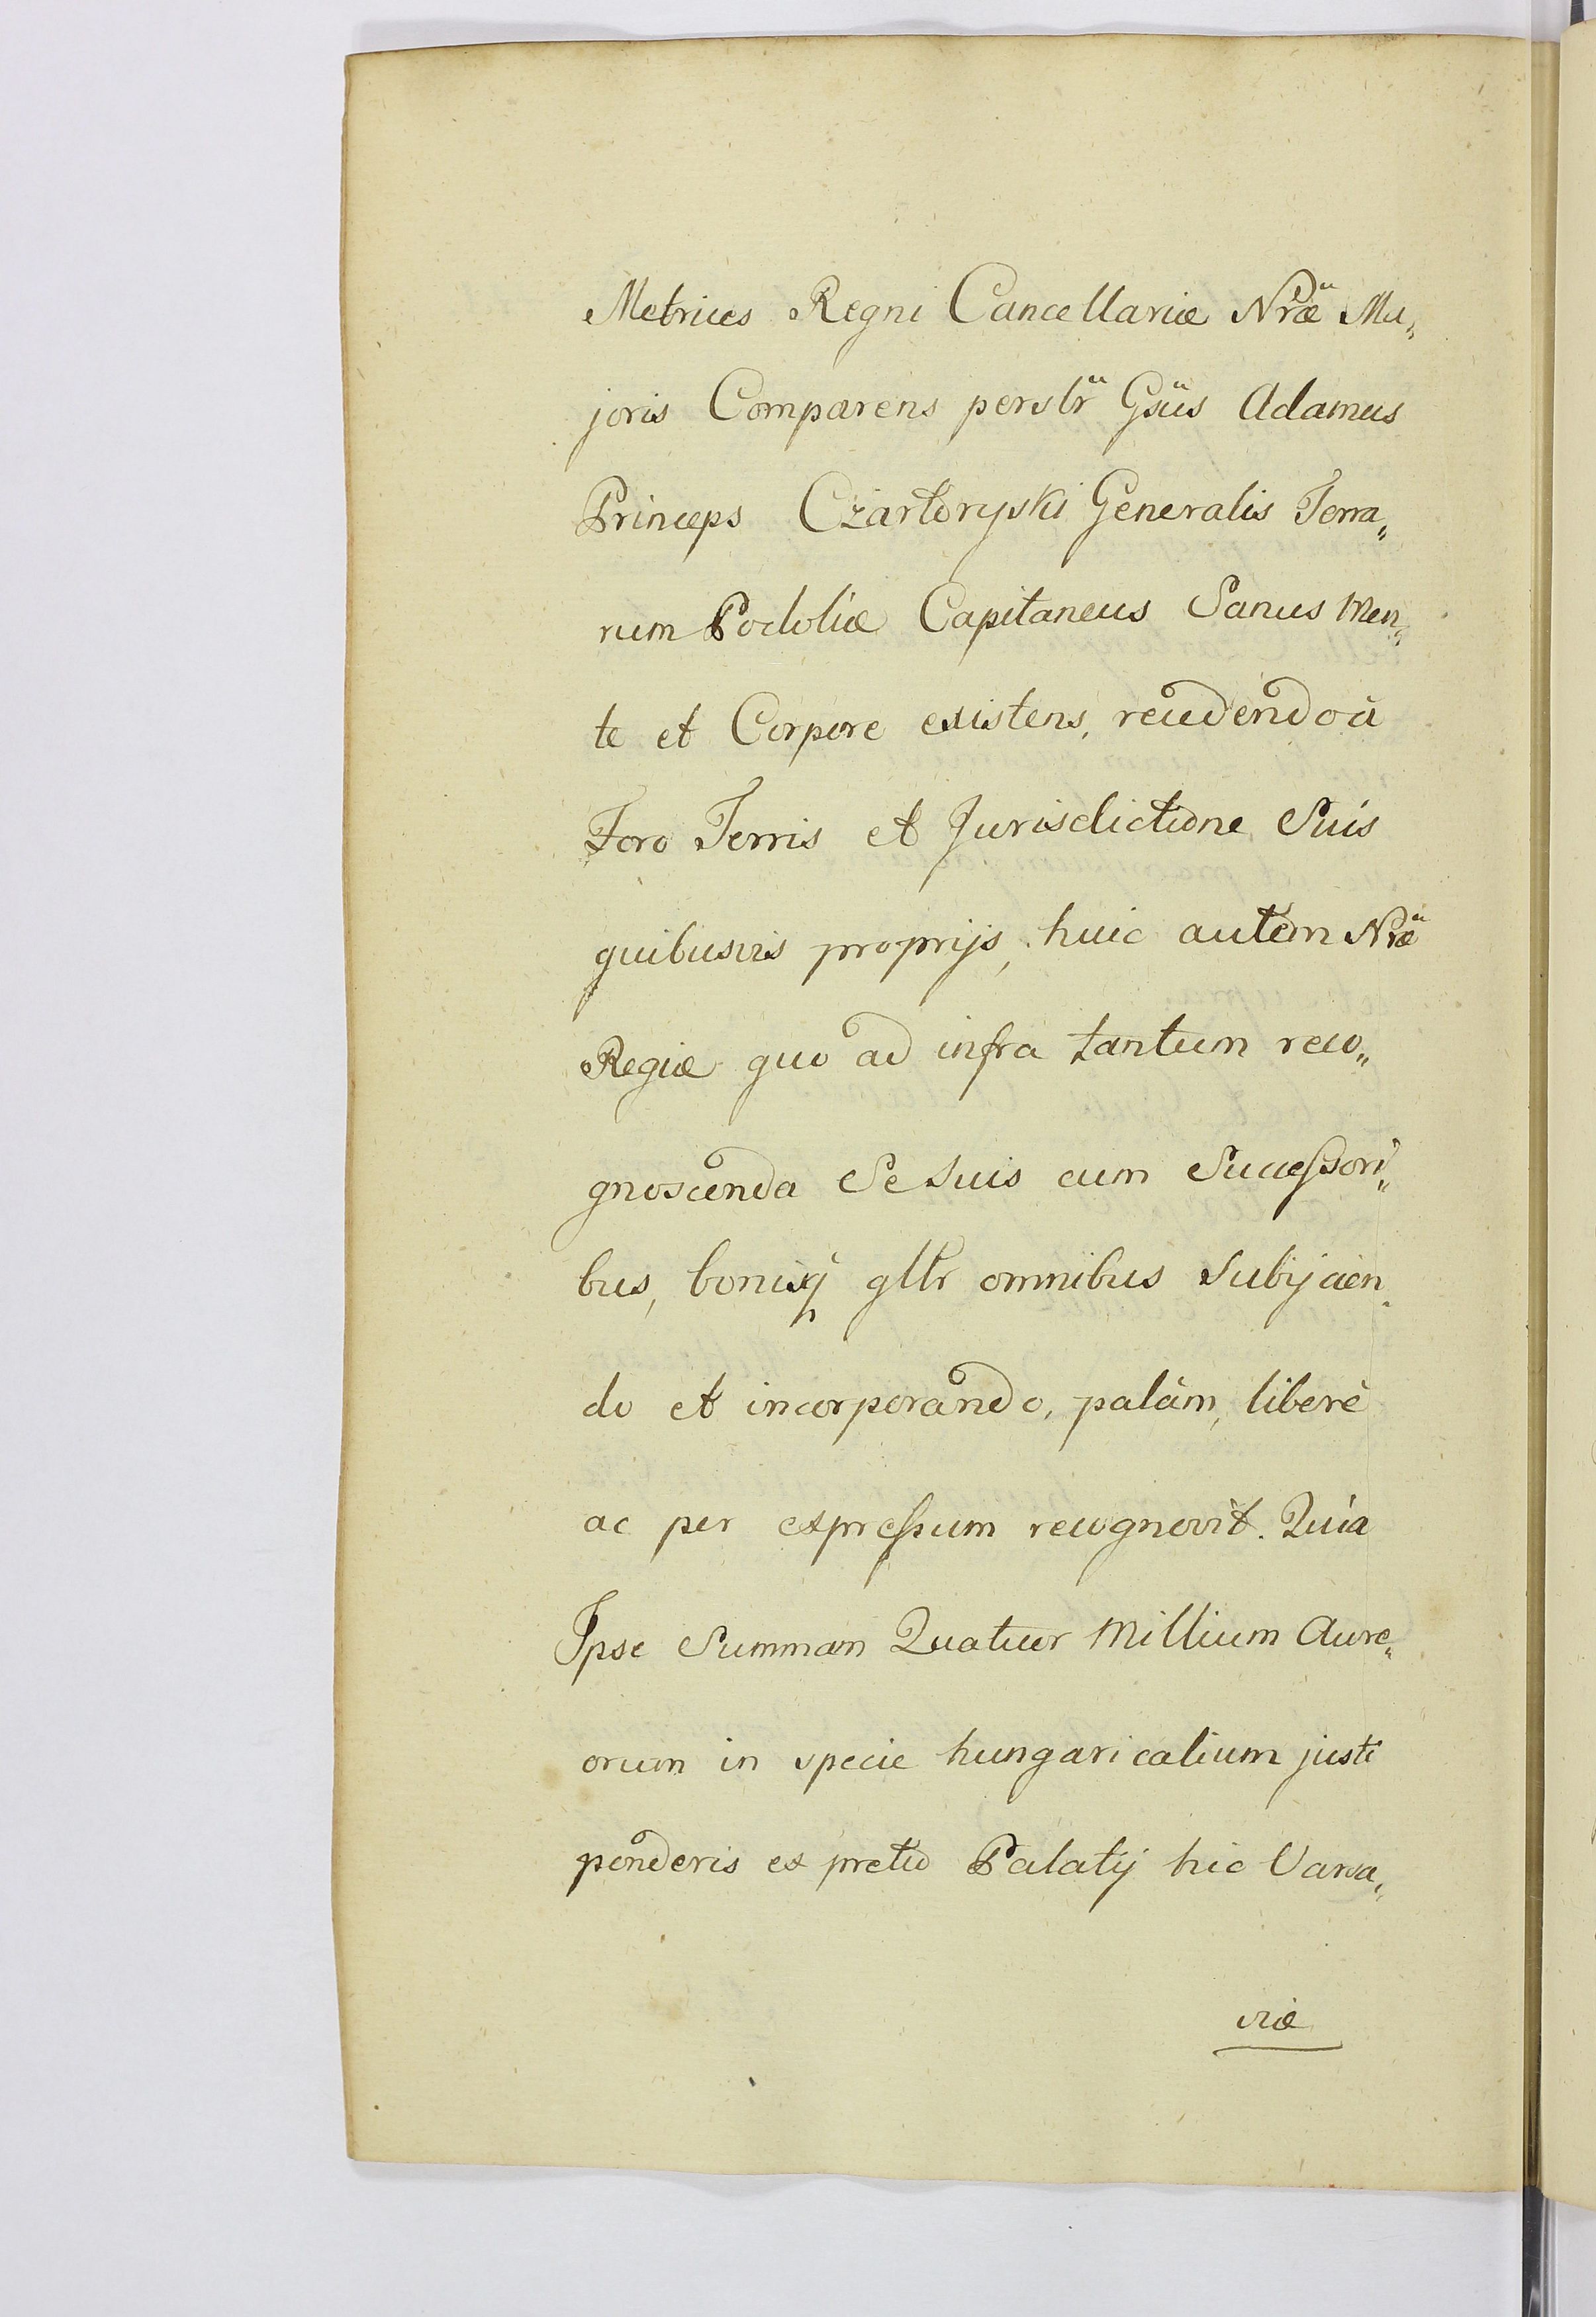 Metrices Regni Cancellariæ Nræ Ma„
joris Comparens perslr Gsus Adamus
Princeps Czartoryski Generalis Terra„
rum Podoliæ Capitaneus Sanus Men„
te et Corpore existens, recedendo à
Foro Terris et Jurisdictione Suis
quibusvis proprijs, huic autem Nræ
Regiæ quo ad infra tantum reco„
gnoscenda Se suis cum Successori„
bus, bonisq; gltr omnibus Subijcien„
do et incorporando, palàm, liberè
ac per expressum recognovit. Quia
Ipse Summam Quatuor Millium Aure„
orum in specie hungaricalium justi
ponderis ex pretio Palatij hic Varsa„
viæ